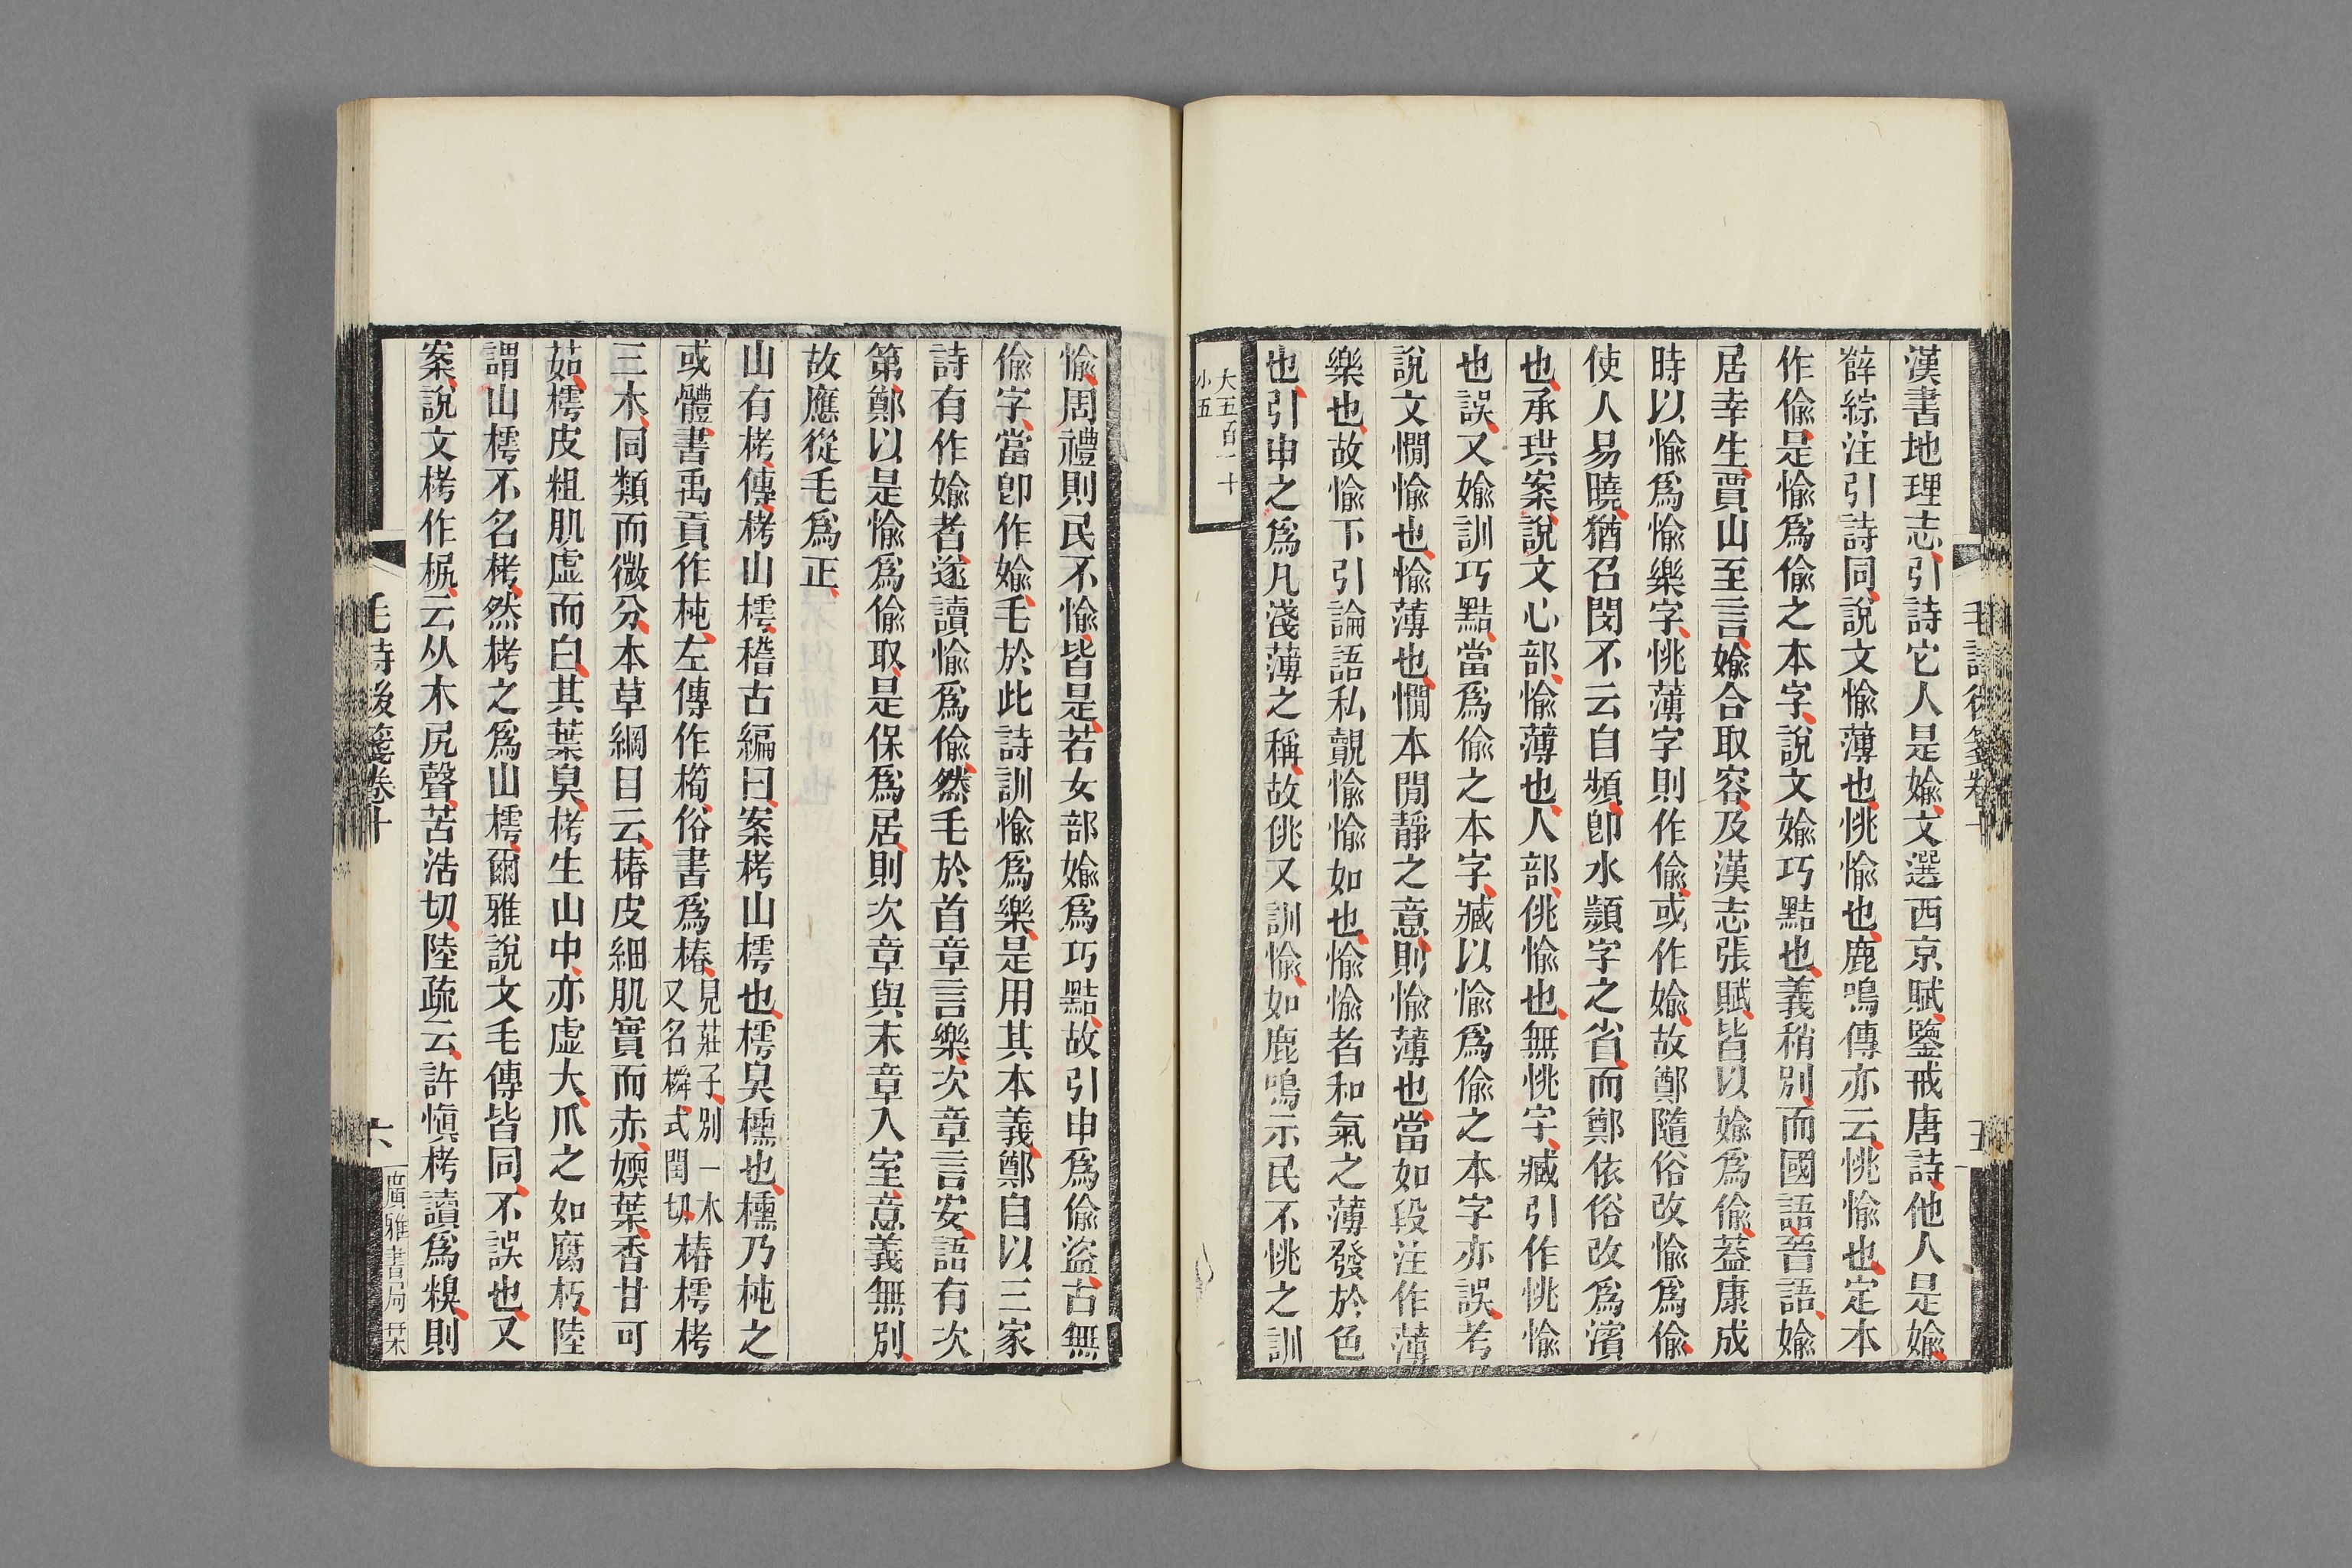 漢書地理志引詩它人是媮文選西京賦鑒戒唐詩他人是媮
薛綜注引詩同說文愉薄也恌愉也鹿鳴傳亦云恌愉也定本
作偷是愉爲偷之本字說文媮巧黠也義稍別而國語晉語媮
居幸生賈山至言媮合取容及漢志張賦皆以媮爲偷葢康成
時以愉爲愉樂字恌薄字則作偷或作媮故鄭隨俗改愉爲偷
使人易曉猶召閔不云自頻卽水顥字之省而鄭依俗改爲濱
也承珙案說文心部愉薄也人部佻愉也無恌字臧引作恌愉
也誤又媮訓巧黠當爲偷之本字臧以愉爲偷之本字亦誤考
說文憪愉也愉薄也憪本閒靜之意則愉薄也當如段注作薄
樂也故愉下引論語私覿愉愉如也愉愉者和氣之薄發於色
也引申之爲凡淺薄之稱故佻又訓愉如鹿鳴示民不恌之訓
大五百一十
小五
毛詩後箋卷十
五
愉周禮則民不愉皆是若女部媮爲巧黠故引申爲偷盜古無
偷字當卽作媮毛於此詩訓愉爲樂是用其本義鄭自以三家
詩有作媮者遂讀愉爲偷然毛於首章言樂次章言安語有次
第鄭以是愉爲偷取是保爲居則次章與末章入室意義無別
故應從毛爲正
山有栲傳栲山樗稽古編曰案栲山樗也樗臭櫄也櫄乃杶之
或體書禹貢作杶左傳作橁俗書爲椿見莊子別一木又名橓式閏切椿樗栲
三木同類而微分本草綱目云椿皮細肌實而赤媆葉香甘可
茹樗皮粗肌虛而白其葉臭栲生山中亦虛大爪之如腐朽陸
謂山樗不名栲然栲之爲山樗爾雅說文毛傳皆同不誤也又
案說文栲作㭧云从木尻聲苦浩切陸疏云許愼栲讀爲糗則
毛詩後箋卷十
六
廣雅書局栞